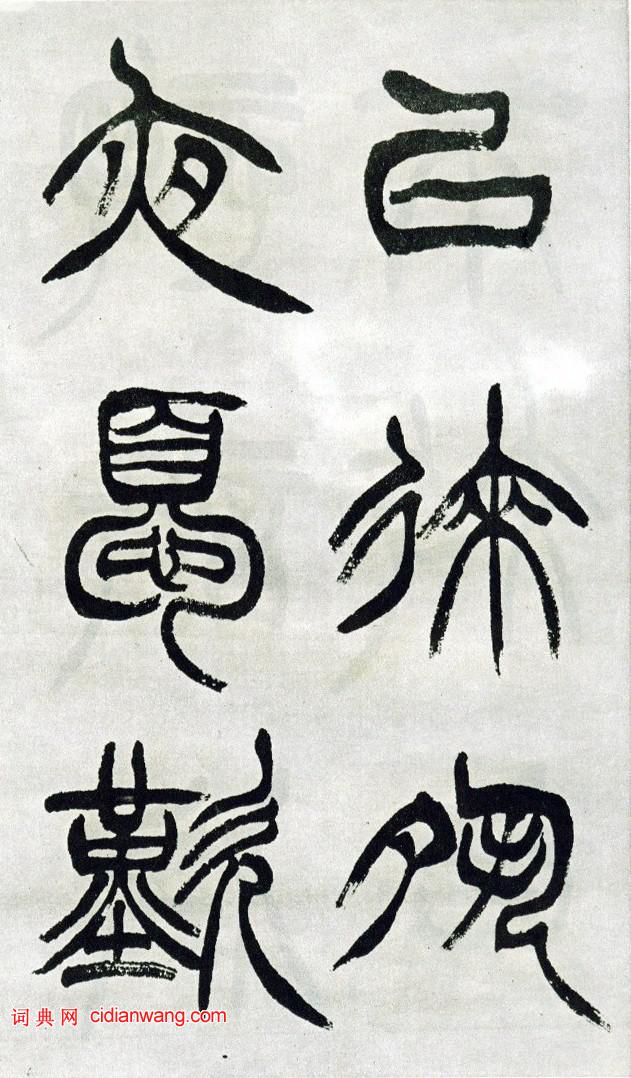 以來夙
夜憂歎
词典网 cidianwang.com